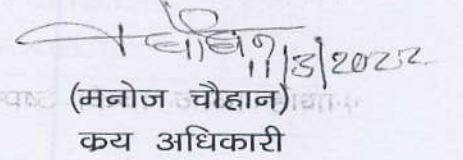 चौहान
11/3/2022
(मनोज चौहान)
क्रय अधिकारी